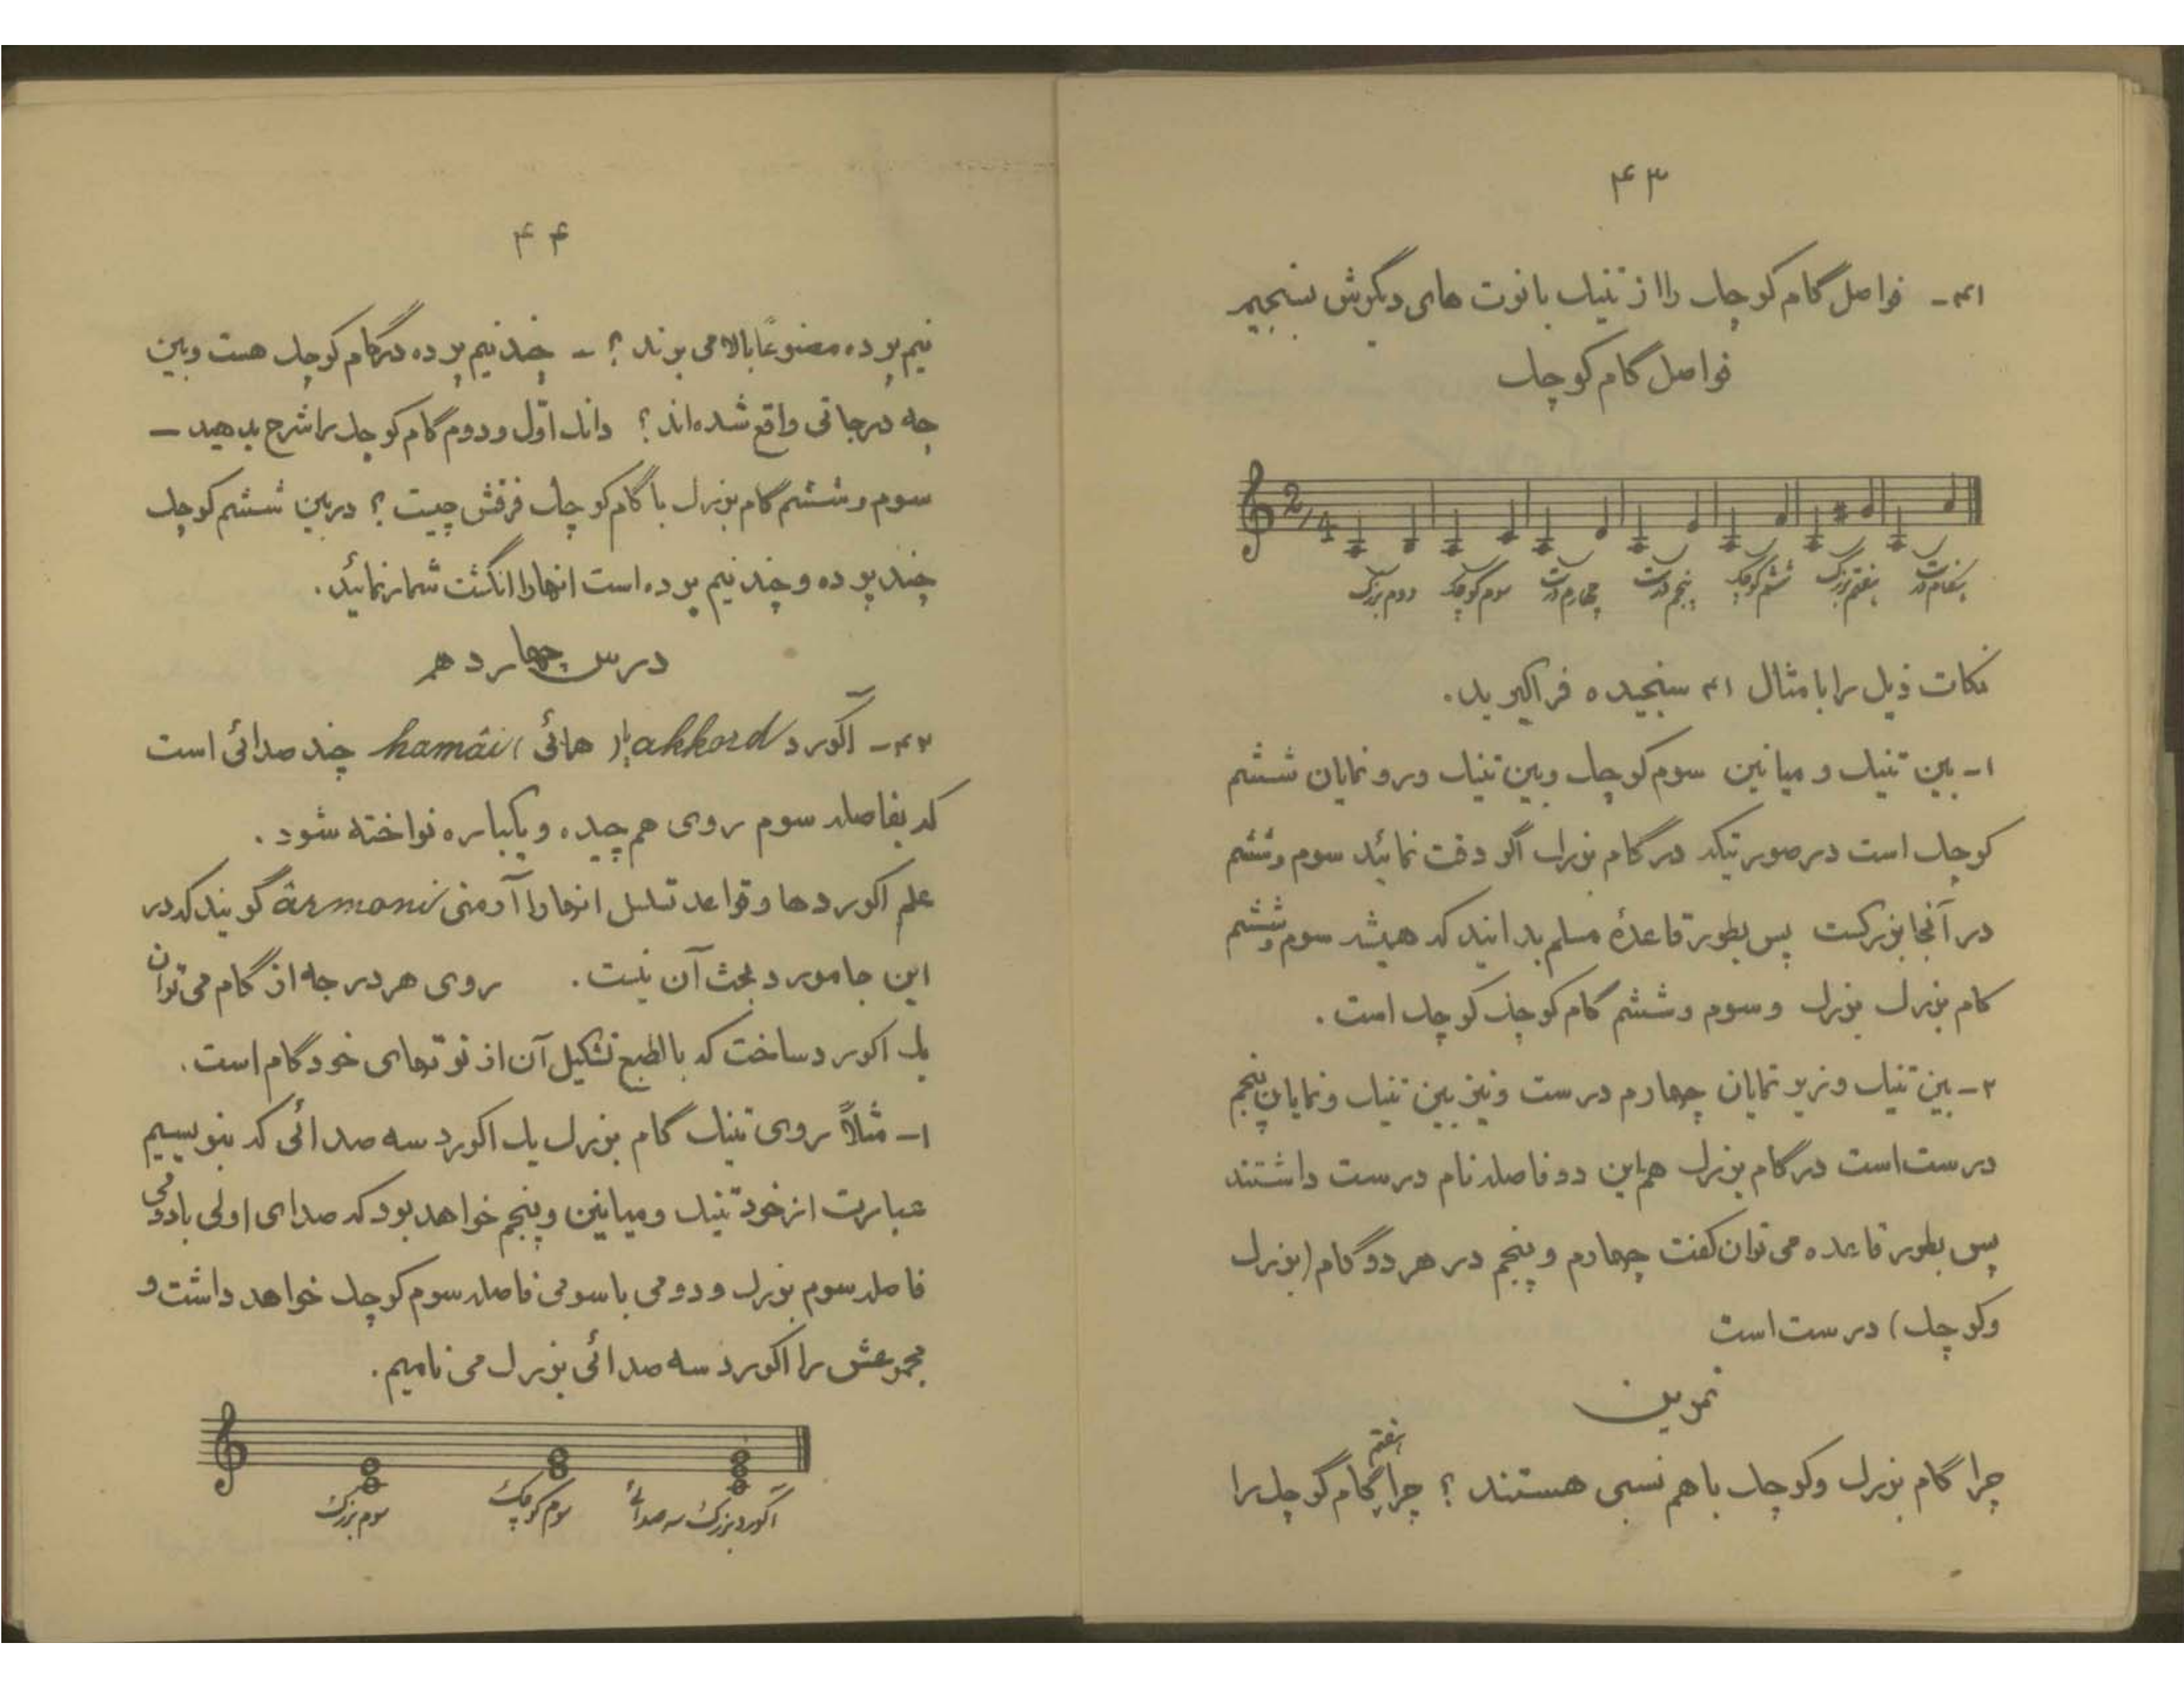 ۴۳
۴۱- فواصل گام کوچک را از تنیک با نوت های دیگرش بسنجیم
فواصل گام کوچک
2/4
دوم بزرگ سوم کوچک چهارم درست پنجم درست ششم کوچک هفتم بزرگ هنگام درست
نکات ذیل را با مثال ۴۱ سنجیده فراگیرید.
۱- بین تنیک و میانین سوم کوچک و بین تنیک و رونمایان ششم
کوچک است در صورتیکه در گام بزرک اگر دقت نمائید سوم و ششم
در آنجا بزرکست پس بطور قاعدهٔ مسلم بدانید که همیشه سوم و ششم
کام بزرک بزرک و سوم و ششم گام کوچک کوچک است.
۲- بین تنیک و زیر نمایان چهارم درست و نیز بین تنیک و نمایان پنجم
درست است در گام بزرک هم این دو فاصله نام درست داشتند
پس بطور قاعده می توان گفت چهارم و پنجم در هر دو گام (بزرک
و کوچک) درست است
تمرین
چرا گام بزرک و کوچک با هم نسبی هستند ؟ چرا هفتم گام کوچک را
۴۴
نیم پرده مصنوعاً بالا می برند ؟ - چند نیم پرده در گام کوچک هست و بین
چه درجاتی واقع شده اند ؟ دانک اوّل و دوم گام کوچک را شرح بدهید -
سوم و ششم گام بزرک با گام کوچک فرقش چیست ؟ در بین ششم کوچک
چند پرده و چند نیم پرده است انها را انگشت شمار نمائید.
درس چهاردهم
۴۲- آکورد akkord یا ( همائی ) hamâi چند صدائی است
که بفاصله سوم روی هم چیده و یکباره نواخته شود.
علم اکوردها و قواعد تسلسل انها را آرمنی ârmoni گویند که در
این جا مورد بحث آن نیست. روی هر درجه از گام می توان
یک اکورد ساخت که بالطبع تشکیل آن از نوتهای خود گام است.
۱- مثلاً روی تنیک گام بزرک یک اکورد سه صدائی که بنویسیم
عبارت از خود تنیک و میانین و پنجم خواهد بود که صدای اولی با دومی
فاصله سوم بزرک و دومی با سومی فاصله سوم کوچک خواهد داشت و
مجموعش را اکورد سه صدائی بزرک می نامیم.
سوم بزرگ سوم کوچک آکورد بزرگ سه صدائی